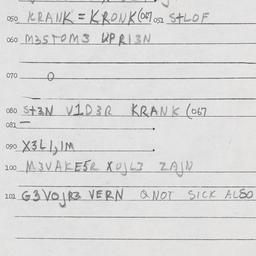 050 KRANK = KRONK (067 052 S+LOF
060 M3STOM3 UPRI3N
070 O
080 S+3N V1D3R KRANK (067
081 —
090 X3L1,1M
100 M3VAKE5R XOJL3 ZAJN
101 G3VOJR3 VERN Q NOT SICK ALSO